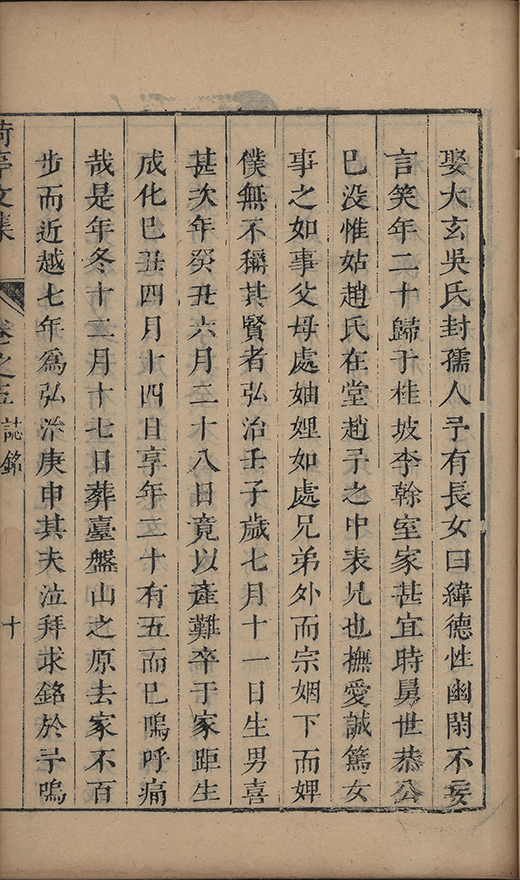 娶大玄吳氏封孺人予有長女曰緯德性幽閑不妄
言笑年二十歸于桂坡李幹室家甚宜時舅世恭公
巳没惟姑趙氏在堂趙予之中表兄也撫愛誠篤女
事之如事父母處妯娌如處兄弟外而宗姻下而婢
僕無不稱其賢者弘治壬子歲七月十一日生男喜
甚次年癸丑六月二十八日竟以產難卒于家距生
成化巳丑四月十四日享年二十有五而巳嗚呼痛
哉是年冬十二月十七日葬臺盤山之原去家不百
步而近越七年爲弘治庚申其夫泣拜求銘於予嗚
荷亭文集 卷之五 誌銘 十